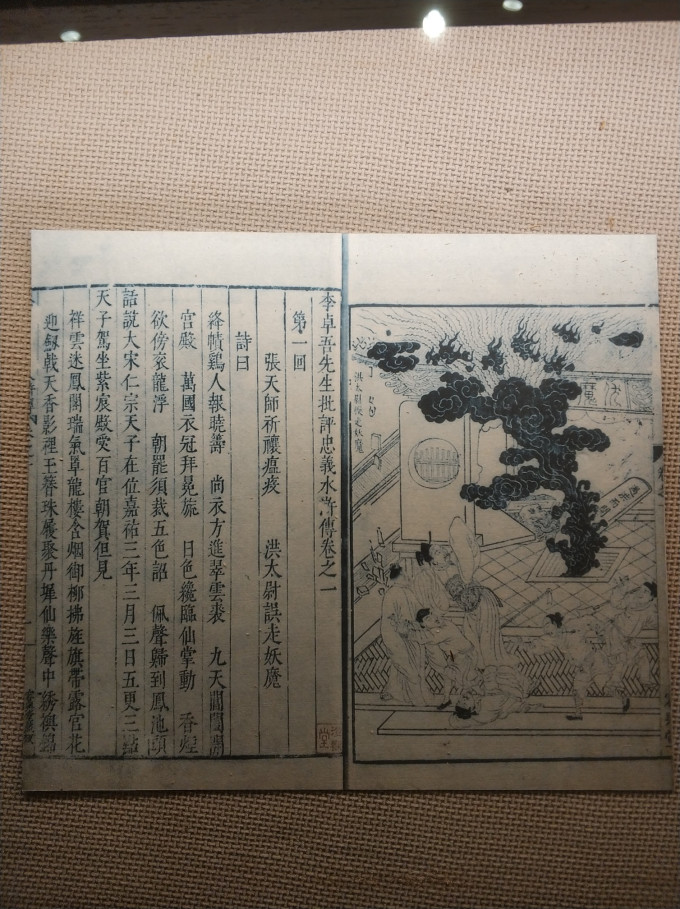 伏魔
洪太尉悞走妖魔
李卓吾先生批評忠義水滸傳卷之一
第一回
張天師祈禳瘟疫 洪太尉誤走妖魔
詩曰
絳幘鷄人報曉籌 尚衣方進翠雲裘 九天閶闔開
宮殿 萬國衣冠拜冕旒 日色纔臨仙掌動 香烟
欲傍袞龍浮 朝罷須裁五色詔 佩聲歸到鳳池頭
話說大宋仁宗天子在位嘉祐三年三月三日五更三點
天子駕坐紫宸殿受百官朝賀但見
祥雲迷鳳閣瑞氣罩龍樓含烟御柳拂旌旗帶露宮花
迎劔戟天香影裡玉簪珠履聚丹墀仙樂聲中綉襖錦